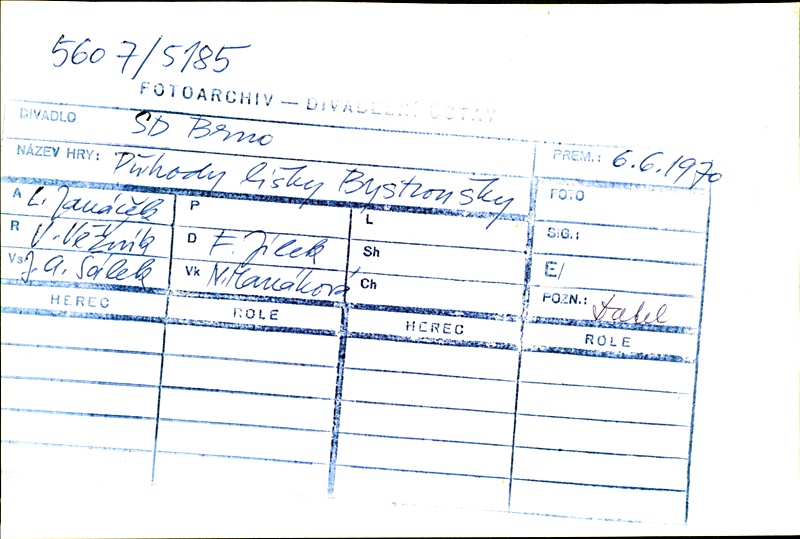 5607/5185
FOTOARCHIV — DIVADELNÍ ÚSTAV
DIVADLO SD Brno
PREM.: 6.6.1970
NÁZEV HRY: Příhody lišky Bystroušky
FOTO
A L. Janáček P L
SIG.:
R V. Věžník D F. Jílek Sh
E/
Vs J. A. Šálek Vk N. Hanáková Ch
POZN.:
HEREC ROLE HEREC ROLE